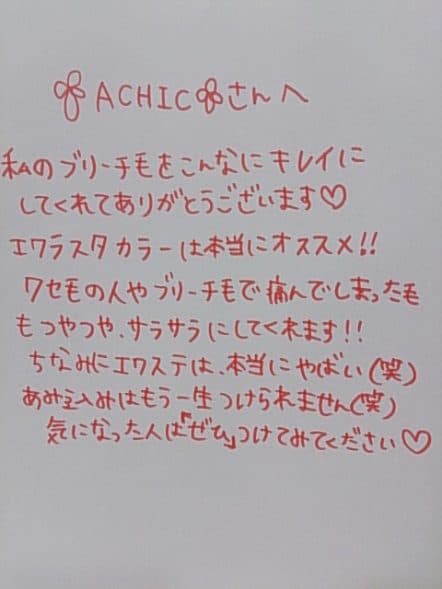 ACHICさんへ
私のブリーチ毛をこんなにキレイに
してくれてありがとうございます♡
エクラスタカラーは本当にオススメ!!
クセ毛の人やブリーチ毛で痛んでしまった毛
もつやつや、サラサラにしてくれます!!
ちなみにエクステは、本当にやばい(笑)
あみ込みはもう一生つけられません(笑)
気になった人は「ぜひ」つけてみてください♡